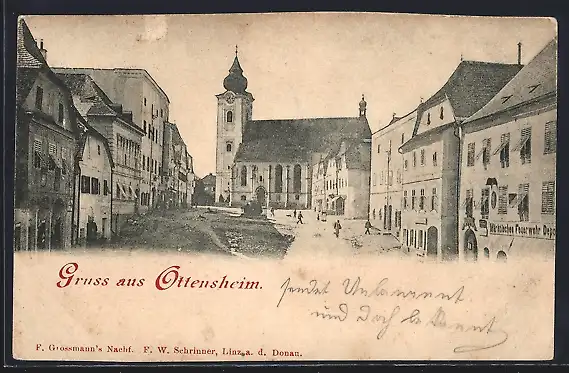 Märktisches Feuerwehr Depot
Gruss aus Ottensheim.
sendet Unbekannt
und doch bekannt
F. Grossmann's Nachf. F. W. Schrinner, Linz a. d. Donau.